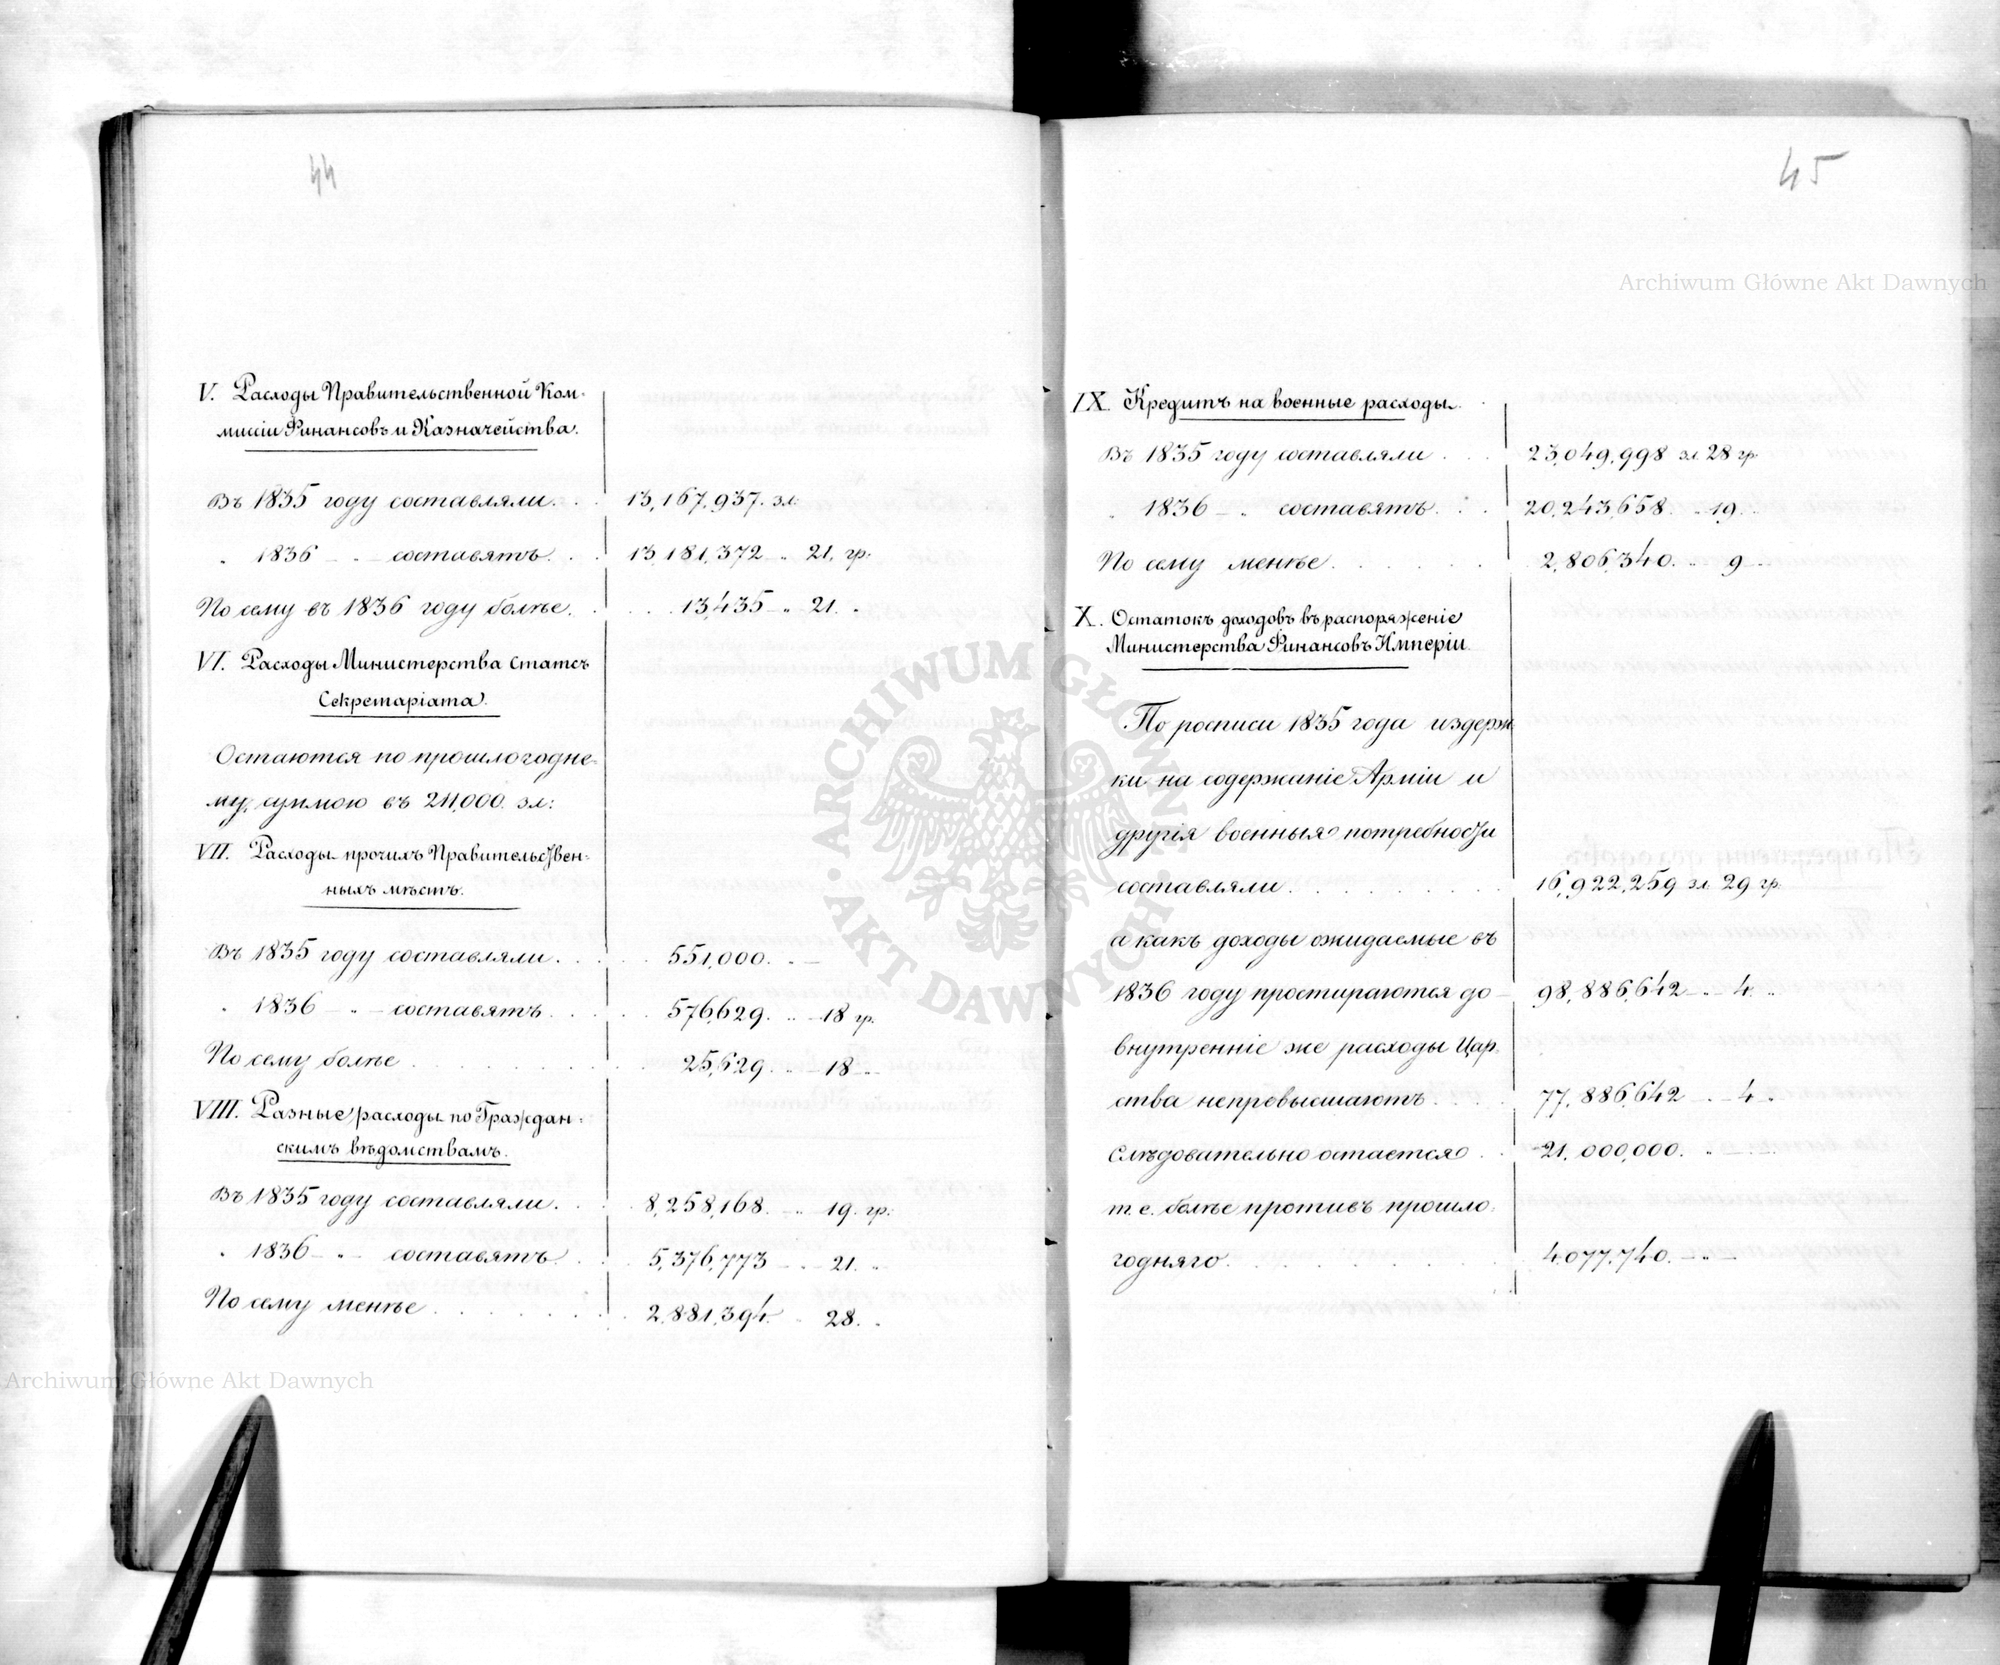 44
V. Расходы Правительственной Ком-
миссіи Финансовъ и Казначейства.
Въ 1835 году составляли. . . 13,167,937. зл.
„ 1836 – „ – составятъ. . . 13,181,372 „ 21. гр.
По сему въ 1836 году болѣе. . . . 13,435 – „ 21. „
VI. Расходы Министерства Статсъ
Секретаріата.
Остаются по прошлогодне-
му, суммою въ 211,000. зл:
VII. Расходы прочихъ Правительствен-
ныхъ мѣстъ.
Въ 1835 году составляли. . . . 551,000. „ –
„ 1836 – „ – составятъ. . . . 576,629. „ – 18 гр.
По сему болѣе . . . . . . . . 25,629. „ – 18 „
VIII. Разные расходы по Граждан-
скимъ вѣдомствамъ.
Въ 1835 году составляли. . . . 8,258,168. – „ 19. гр.
„ 1836 – „ – составятъ . . . 5,376,773 – „ 21. „
По сему менѣе . . . . . . . 2,881,394. „ 28. „
45
IX. Кредитъ на военные расходы.
Въ 1835 году составляли . . . 23,049,998 зл 28 гр.
„ 1836 – „ составятъ . . . 20,243,658. „ 19. „
По сему менѣе . . . . . . 2,806,340. „ 9 „
X. Остатокъ доходовъ въ распоряженіе
Министерства Финансовъ Имперіи.
По росписи 1835 года издерж-
ки на содержаніе Арміи и
другія военныя потребности
составляли . . . . . . . . 16,922,259 зл 29 гр.
а какъ доходы ожидаемые въ
1836 году простираются до – 98,886,642 – „ – 4. „
внутренніе же расходы Цар-
ства непревышаютъ . . . . 77,886,642 – „ – 4 „
Слѣдовательно остается . . 21,000,000. „ – „ –
т. е. болѣе противъ прошло-
годняго . . . . . . . . . 4,077,740. – „ –
Archiwum Główne Akt Dawnych
Archiwum Główne Akt Dawnych
ARCHIWUM GŁÓWNE
AKT DAWNYCH